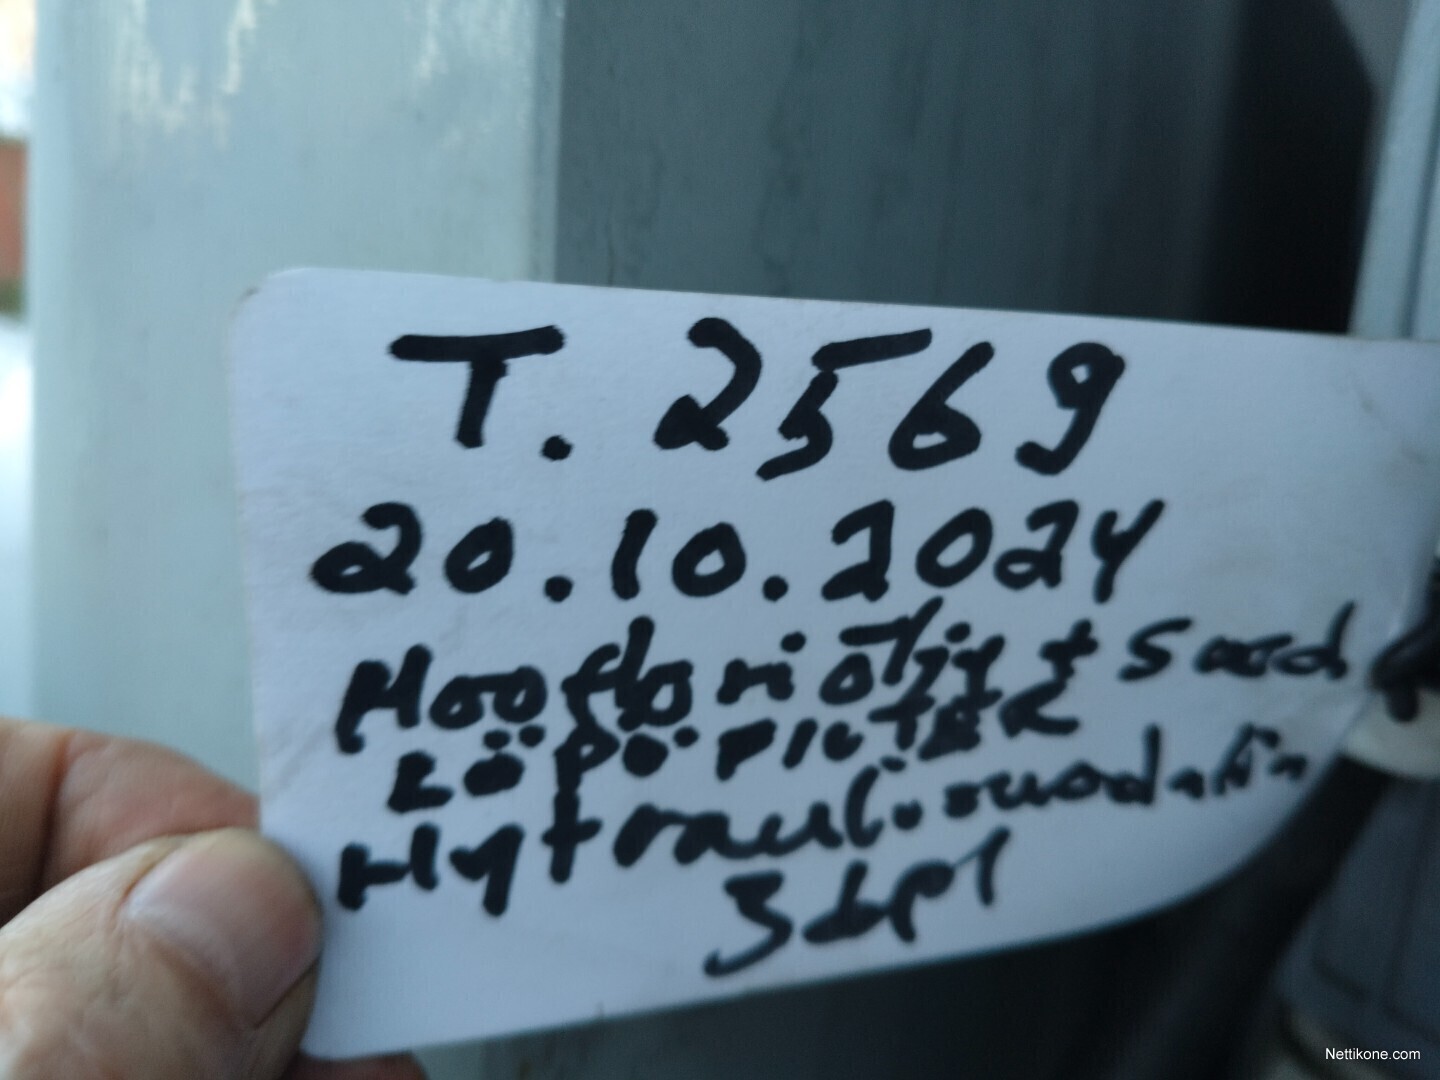 T. 2569
20.10.2024
Moottoriöljy + suod
LöPö. FILTER
Hytrauli.suodatin
3kpl
Nettikone.com